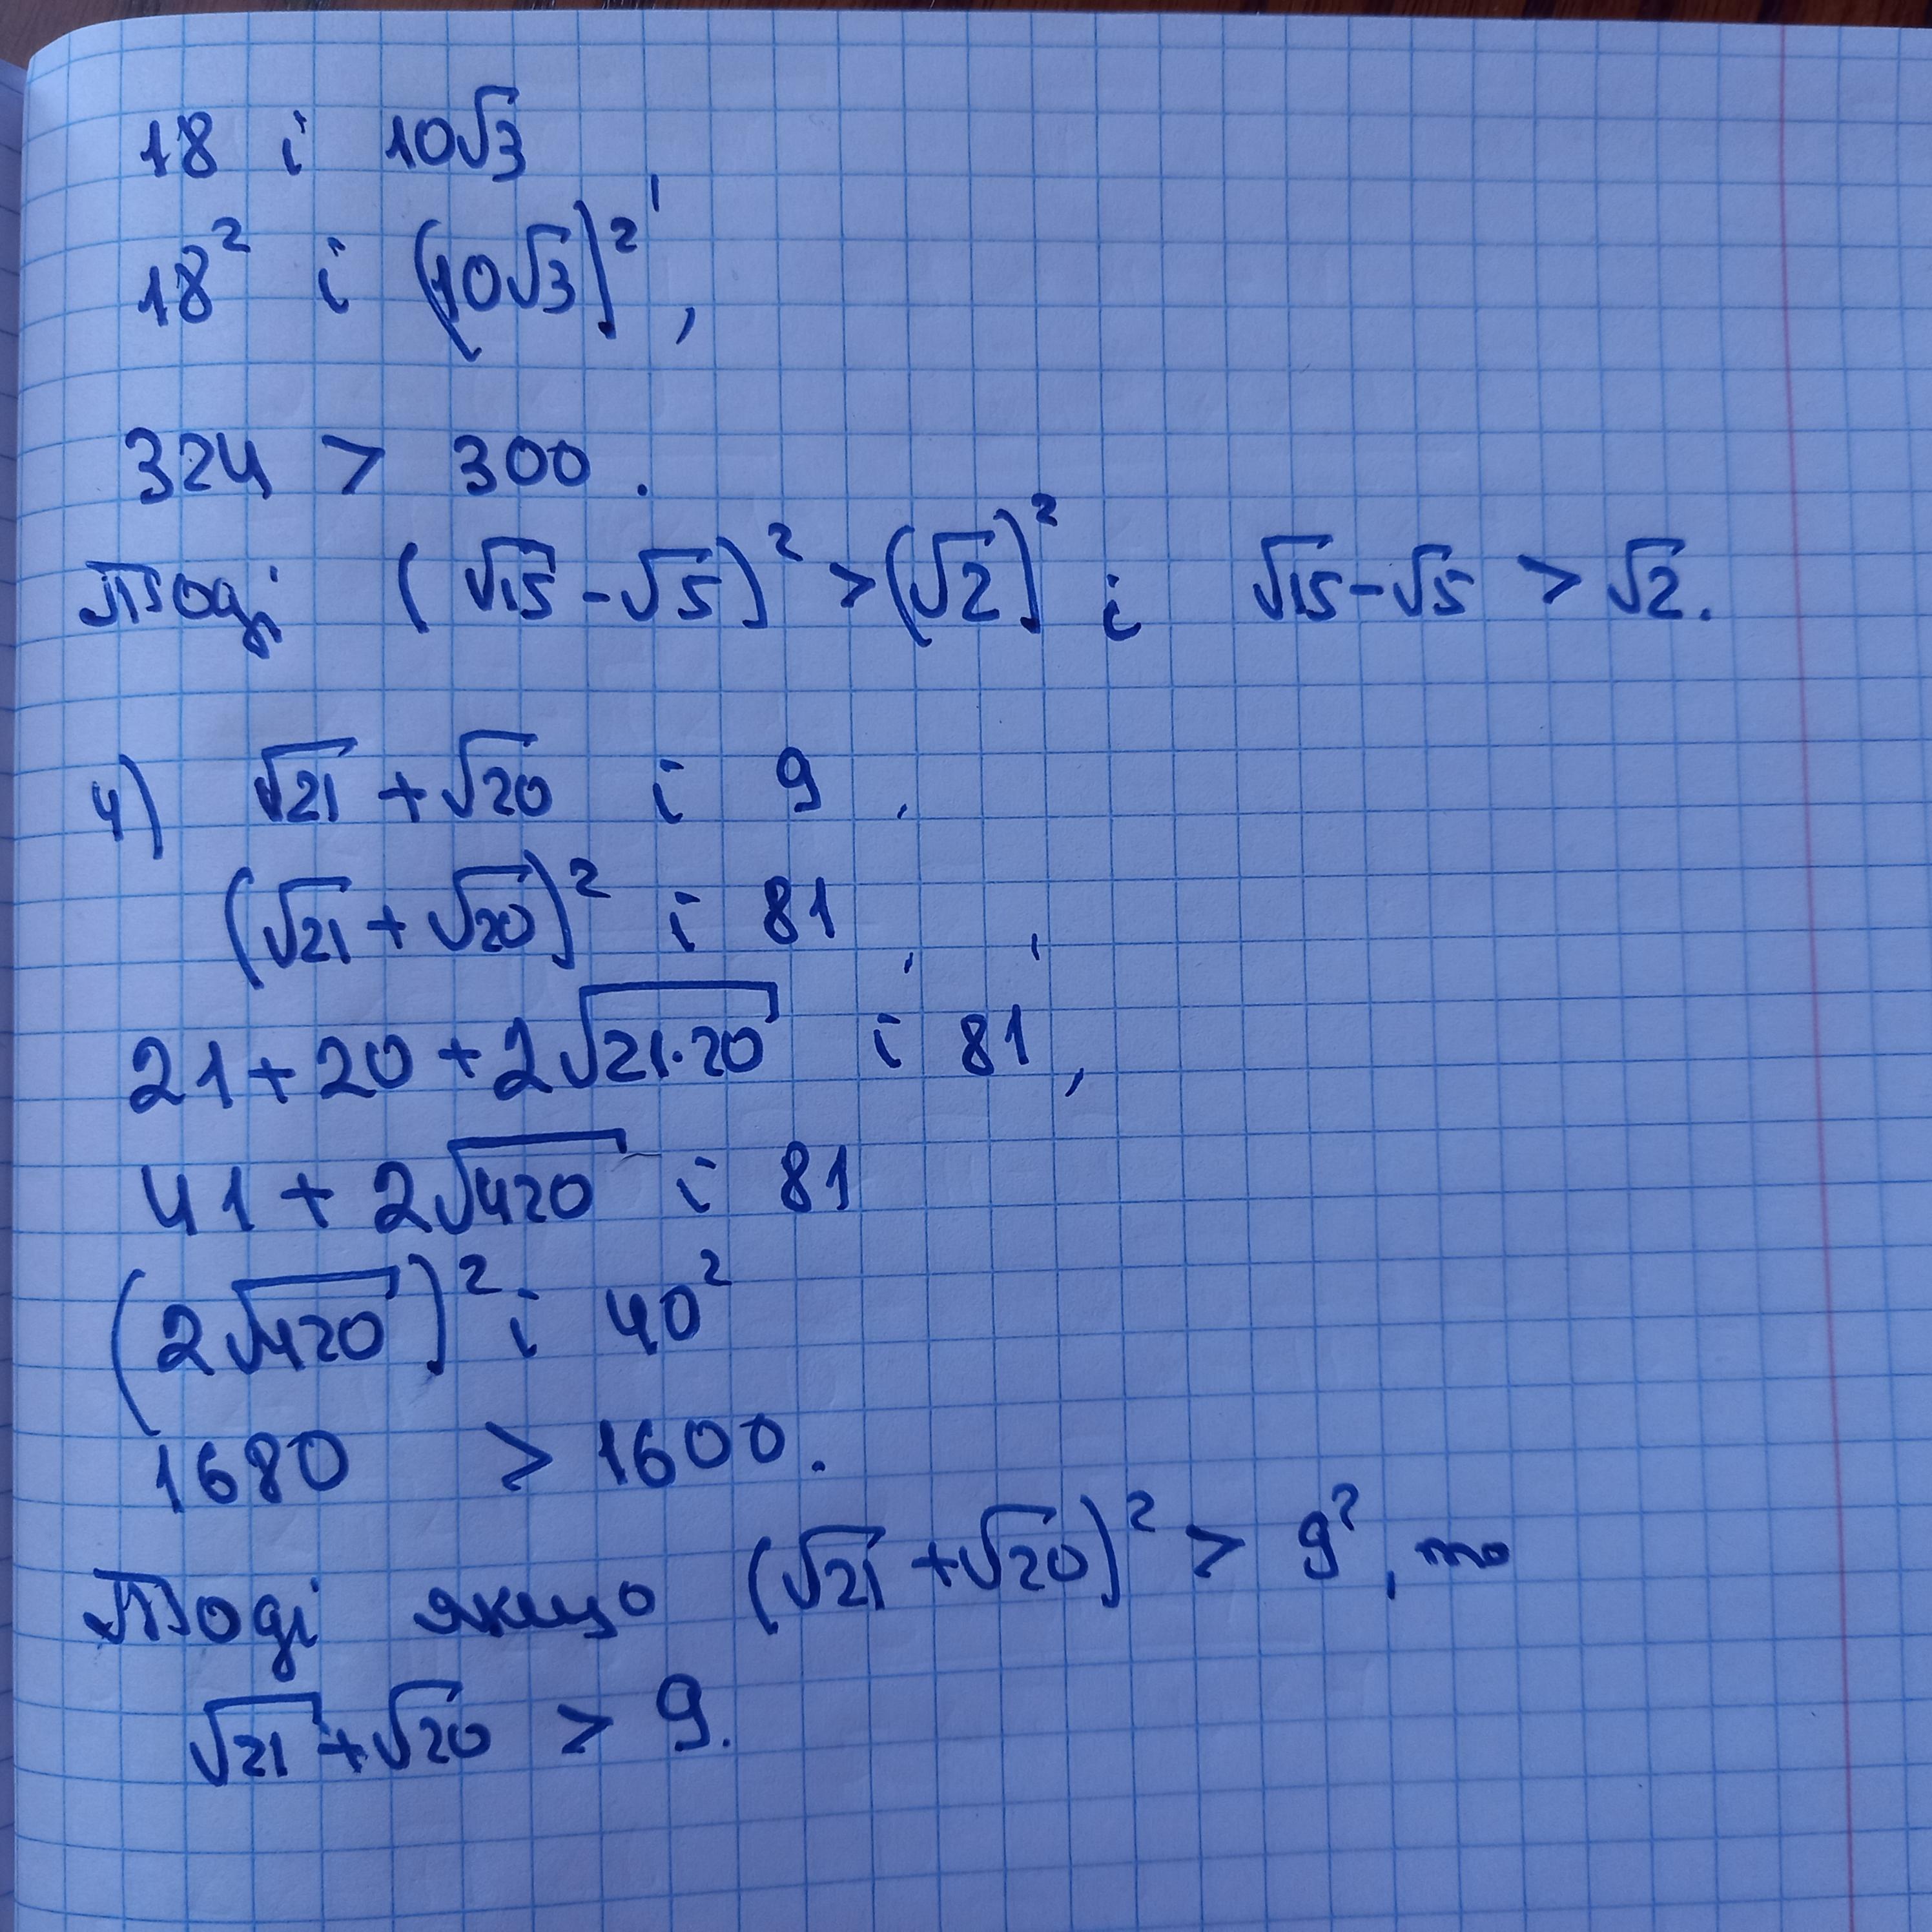 18 і 10√3
18² і (10√3)²,
324 > 300.
Тоді (√15 - √5)² > (√2)² і √15 - √5 > √2.
4) √21 + √20 і 9,
(√21 + √20)² і 81,
21 + 20 + 2√21·20 і 81,
41 + 2√420 і 81
(2√420)² і 40²
1680 > 1600.
Тоді якщо (√21 + √20)² > 9², то
√21 + √20 > 9.